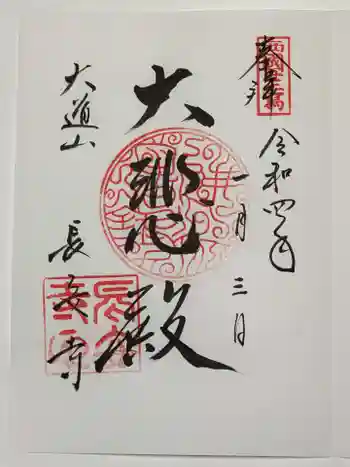 奉拝
令和四年
一月三日
大悲殿
大道山
長安寺